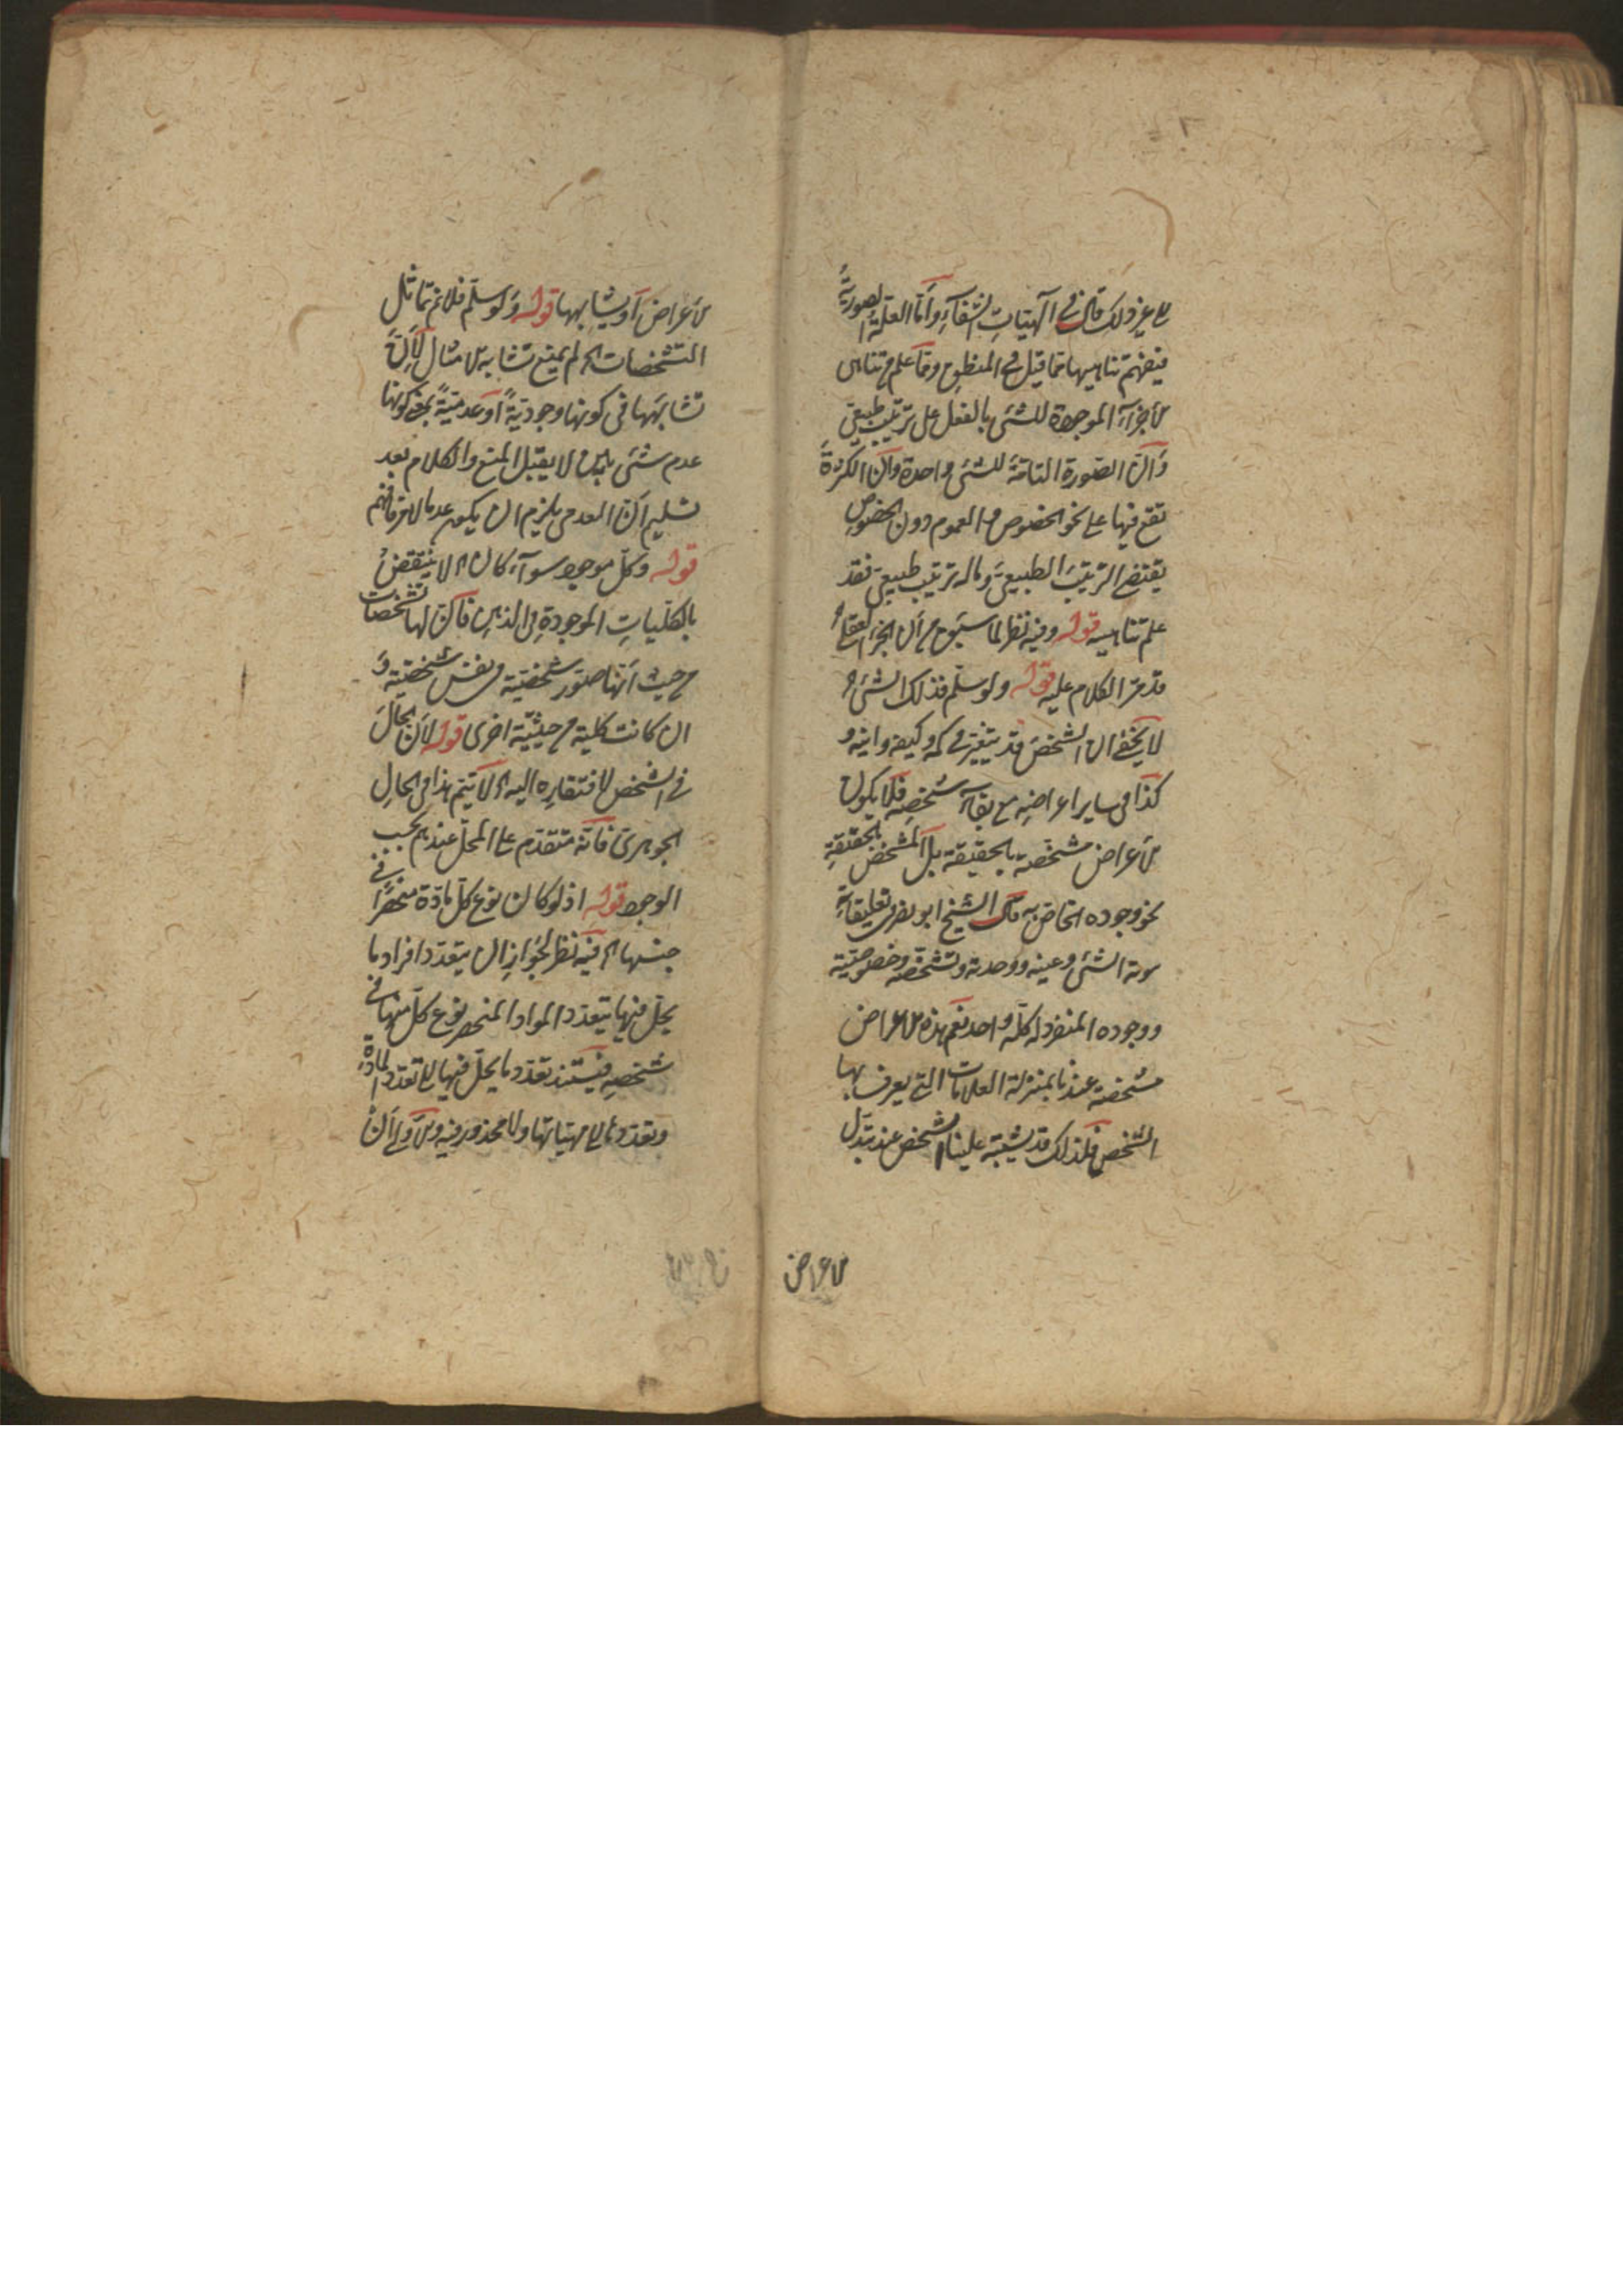 الى غير ذلك قال في آلهيات الشفاء وأما العلة الصورية
فيفهم تناهيها مما قيل في المنطق ومما علم من تناهى
الاجزاء الموجودة للشئ بالفعل على ترتيب طبيعى
وأن الصورة التامة للشئ واحدة وأن الكثرة
تقع فيها على نحو الخصوص والعموم دون الخصوص
يقتضى الترتيب الطبيعى وماله ترتيب طبيعى فقد
علم تناهيه قوله وفيه نظر لما سبق من أن الجزء العقلى
قد مر الكلام عليه قوله ولو سلم فذلك الشئ
لا يخفى ان الشخص قد يتغير في كمه وكيفه واينه و
كذا في ساير اعراضه مع بقاء شخصه فلا يكون
الاعراض مشخصة بالحقيقة بل المشخص بالحقيقة
نحو وجوده الخاص به قال الشيخ ابو نصر في تعليقاته
هوية الشئ وعينه ووحدته وتشخصه وخصوصيته
ووجوده المنفرد له كله واحد نعم هذه الاعراض
مشخصة عندنا بمنزلة العلامات التي يعرف بها
الشخص فلذلك قد يشتبه علينا الشخص عند تبدل
الاعراض
الاعراض أو يشابهها قوله ولو سلم فلا نم تماثل
التشخصات لم يمنع تشابه الامثال لأن
تشابهها في كونها وجودية أو عدمية بمعنى كونها
عدم شئ لا يقبل المنع والكلام بعد
تسليم أن العدمى يلزم ان يكون عدما لامر فافهم
قوله وكل موجود سواء كان الخ لا ينتقض
بالكليات الموجودة في الذهن فأن لها تشخصات
من حيث أنها صور شخصية في نفس شخصية و
ان كانت كلية من حيثية اخرى قوله لأن الحال
في الشخص لافتقاره اليه الخ لا يتم هذا في الحال
الجوهرى فأنه متقدم على المحل عندهم بحسب
الوجود قوله اذ لو كان نوع كل مادة منحصرا في
جنسها الخ فيه نظر لجواز ان يتعدد افراد ما
يحل فيها بتعدد المواد المنحصر نوع كل منها في
شخصه فيستند تعدد ما يحل فيها الى تعدد المادة
وتعددها الى مهياتها ولا محذور فيه والأولى أن